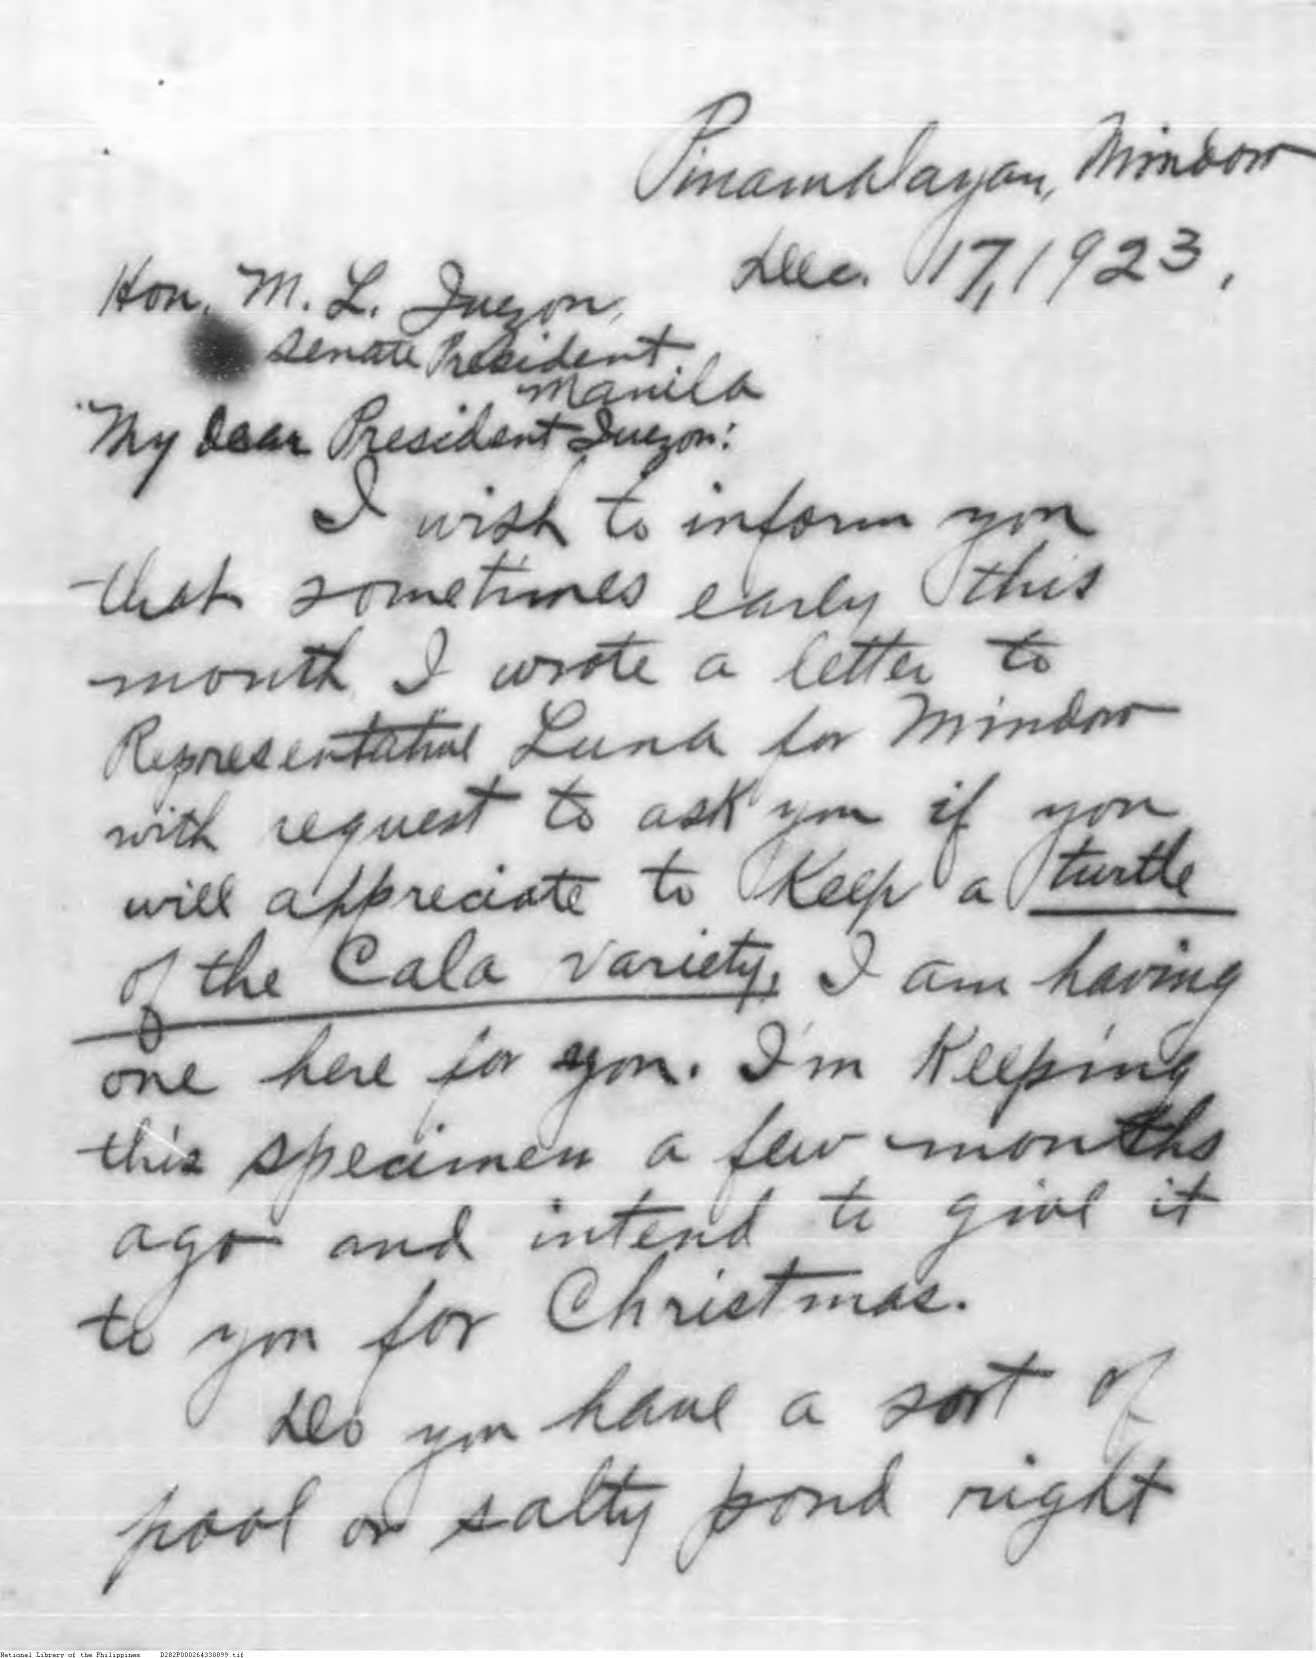 Pinamalayan, Mindoro
Dec. 17, 1923.
Hon. M. L. Quezon,
Senate President
Manila
My dear President Quezon:
I wish to inform you
that sometimes early this
month I wrote a letter to
Representative Luna for Mindoro
with request to ask you if you
will appreciate to keep a turtle
of the Cala variety. I am having
one here for you. I'm keeping
this specimen a few months
ago and intend to give it
to you for Christmas.
Do you have a sort of
pool or salty pond right
National Library of the Philippines D282P000264338099.tif